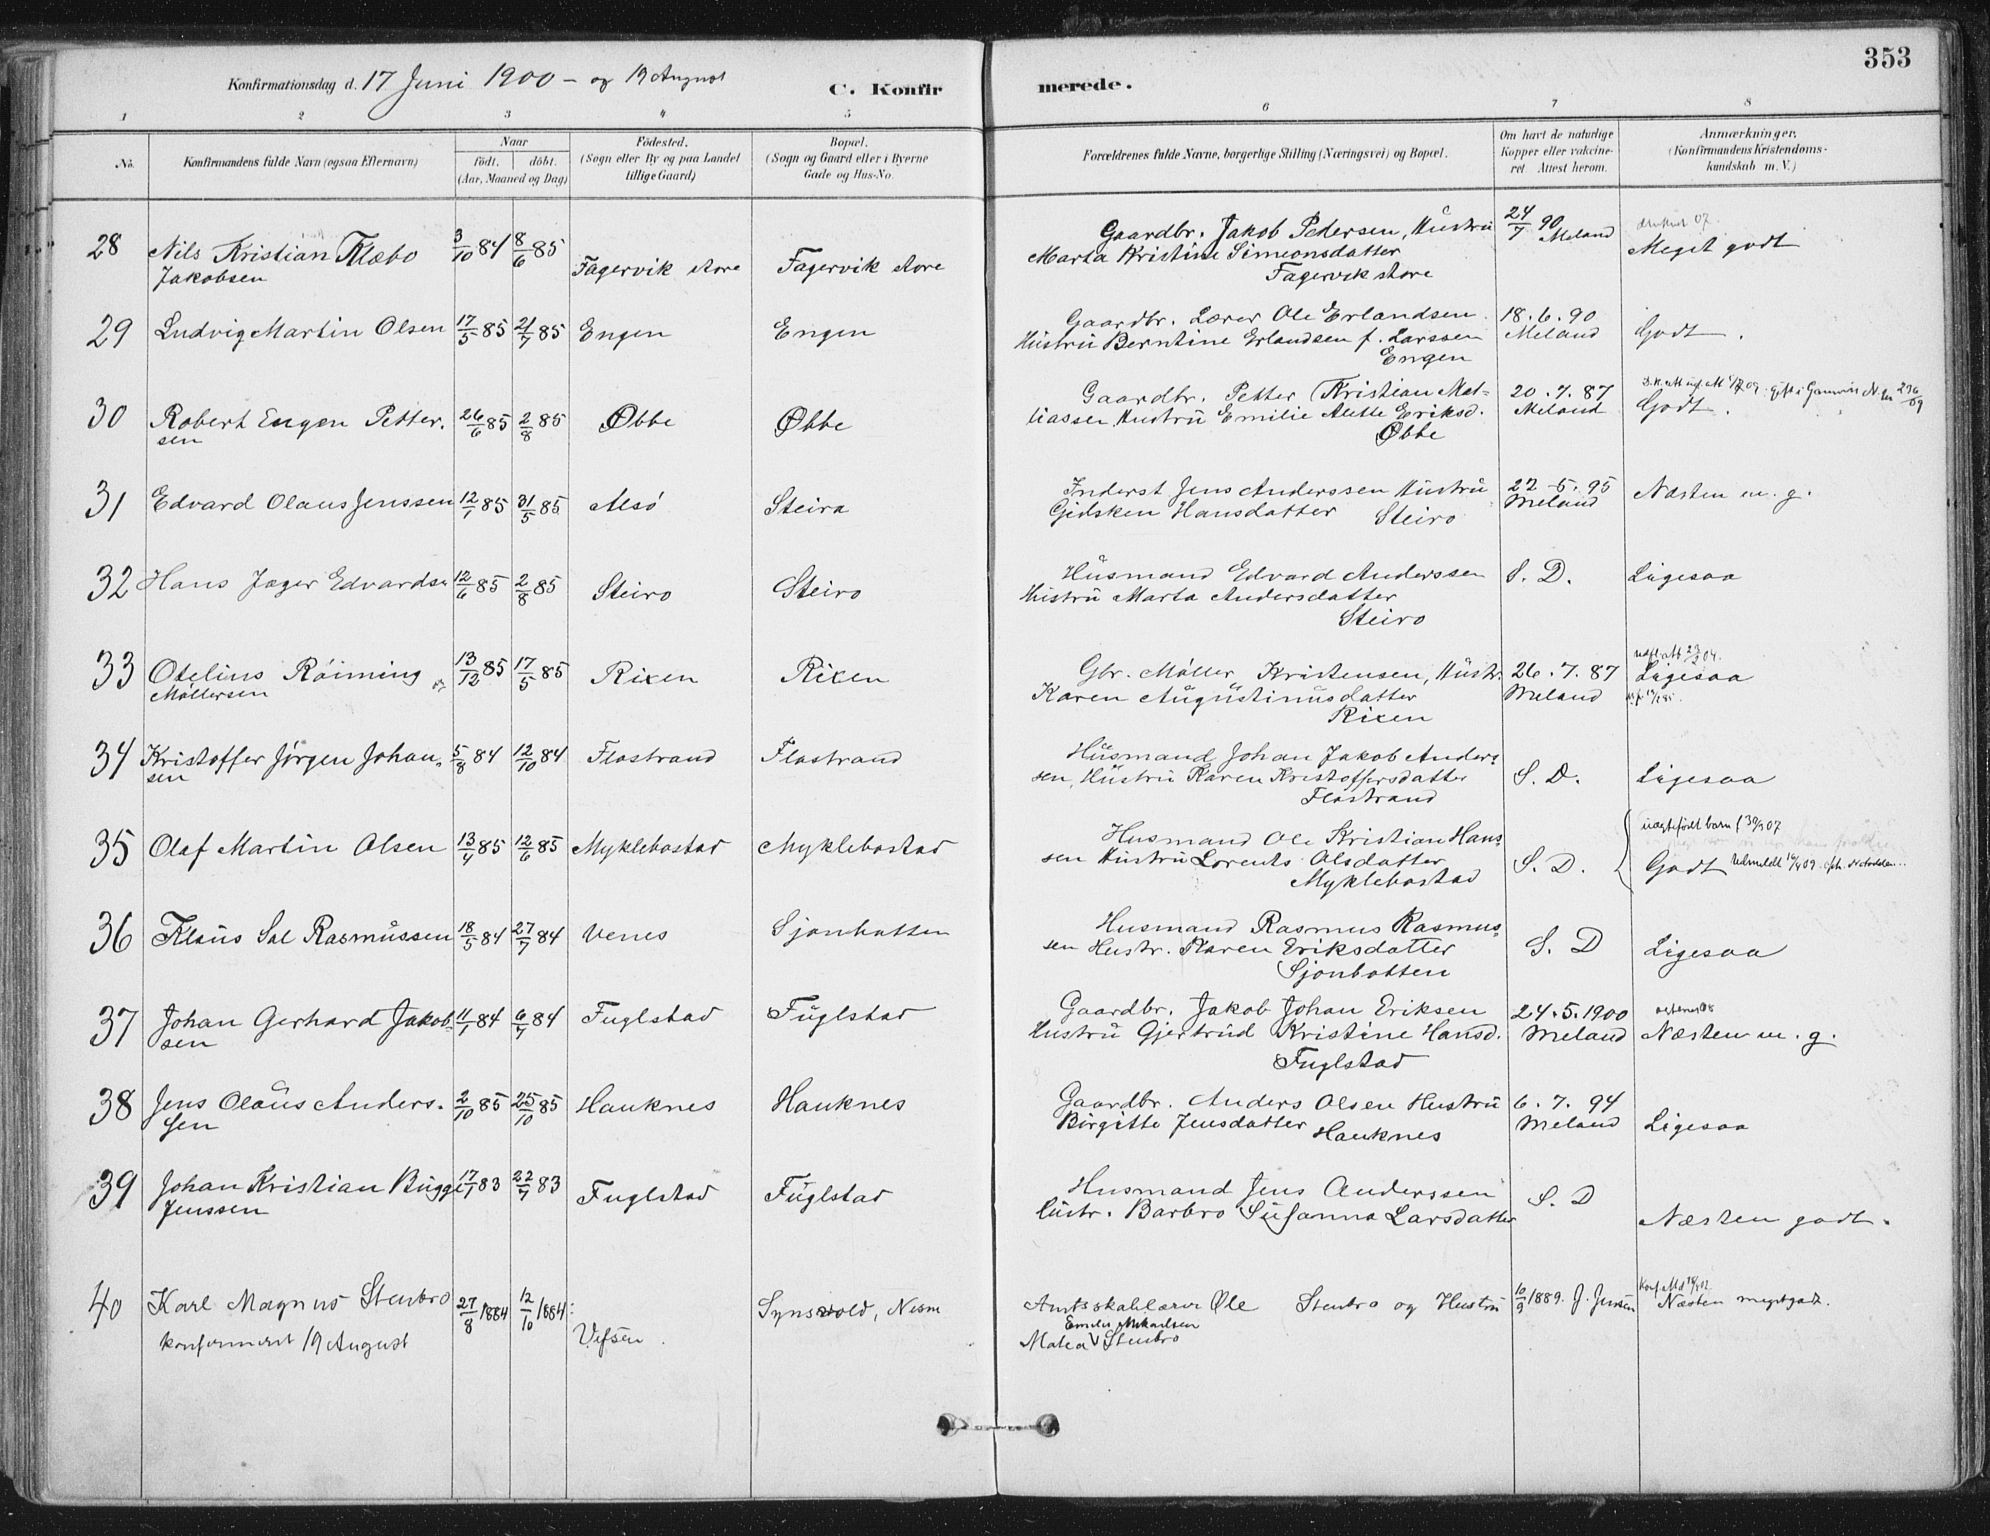 353
Konfirmationsdag d. 17 Juni 1900 – og 19 August
C. Konfir
merede.
1 2 3 4 5 6 7 8
No.
Konfirmandens fulde Navn (ogsaa Efternavn)
Naar
födt. döbt.
(Aar, Maaned og Dag)
Födested.
(Sogn eller By og paa Landet
tillige Gaard)
Bopæl.
(Sogn og Gaard eller i Byerne
Gade og Hus-No.
Forældrenes fulde Navne, borgerlige Stilling (Næringsvei) og Bopæl.
Om havt de naturlige
Kopper eller vakcine-
ret. Attest herom.
Anmærkninger.
(Konfirmandens Kristendoms-
kundskab m. V.)
28 Nils Kristian Klæbo 3/10 84 8/6 85 Fagervik store Fagervik store Gaardbr. Jakob Pedersen, Hustru 24/7 90 Meland
Jakobsen Marta Kristine Simeonsdatter Meget godt
Fagervik store
29 Ludvig Martin Olsen 17/5 85 21/7 85 Engen Engen Gaardbr. Lærer Ole Erlandsen 18.6.90
Hustru Berntine Erlandsen f. Larssen Meland Godt.
Engen
30 Robert Engen Petter- 26/6 85 2/8 85 Øbbe Øbbe Gaardbr. Petter Kristian Mat- 20.7.87
sen iassen, Hustru Emilie Alette Eriksd. Meland Godt.
Øbbe
31 Edvard Olaus Jenssen 12/1 85 31/5 85 Alsö Steira Inderst Jens Anderssen Hustru 22-5.95 Næsten m. g.
Gidsken Hansdatter Steiro Meland
32 Hans Jager Edvardsn 12/6 85 2/8 85 Steiro Steiro Husmand Edvard Anderssen S. D. Ligesaa
Hustru Marta Andersdatter
Steiro
33 Otelius Röinning 13/12 85 17/5 85 Rixen Rixen Gbr. Möller Kristensen, Hustr. 26.7.87 Ligesaa
Möllersen Karen Augustinusdatter Meland
Rixen
34 Kristoffer Jörgen Johan- 5/8 84 12/10 84 Flostrand Flostrand Husmand Johan Jakob Anders-
sen sen, Hustru Karen Kristoffersdatter S. D. Ligesaa
Flostrand
35 Olaf Martin Olsen 13/4 85 12/6 85 Myklebostad Myklebostad Husmand Ole Kristian Hans- uægtefödt barn f 30/9 07
sen Hustru Lorents Olsdatter S. D. Godt
Myklebostad
36 Klaus Sal Rasmussen 18/5 84 27/7 84 Venes Sjonbotten Husmand Rasmus Rasmus-
sen Hustr. Karen Eriksdatter S. D Ligesaa
Sjonbotten
37 Johan Gerhard Jakob- 11/1 84 6/7 84 Fuglstad Fuglstad Gaardbr. Jakob Johan Eriksen 24.5.1900
sen Hustru Gjertrud Kristine Hansd. Meland Næsten m. g.
Fuglstad
38 Jens Olaus Anders- 2/10 85 25/10 85 Hauknes Hauknes Gaardbr. Anders Olsen Hustru 6.7.94
sen Birgitte Jensdatter Hauknes Meland Ligesaa
39 Johan Kristian Bugge 17/1 83 22/7 83 Fuglstad Fuglstad Husmand Jens Anderssen S. D
Jenssen Hustr. Barbro Susanna Larsdatter Næsten godt.
40 Karl Magnus Stenbro 27/8 1884 12/10 1884: Vefsen. Ole Stenbro og Hustru 10/9 1889. J. Jensen Næsten megetgodt.
konfirmeret 19 August Matea Stenbro